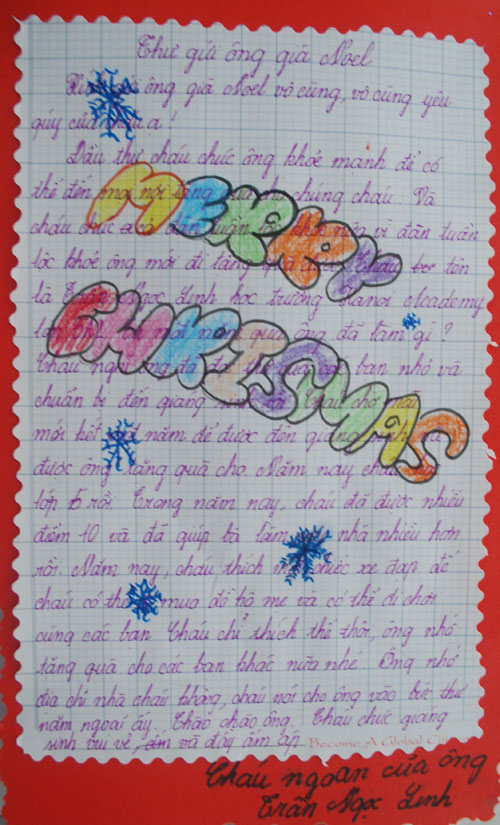 Thư gửi ông già Noel
gửi ông già Noel vô cùng, vô cùng yêu
qúy của cháu ạ!
Đầu thư cháu chúc ông khỏe mạnh để có
thể đến chúng cháu. Và
cháu chúc đàn tuần vì đàn tuần
lộc khỏe ông mới đi tặng tên
là Trần Ngọc Linh học trường Hanoi Academy
một năm qua ông đã làm gì?
Cháu các bạn nhỏ và
chuẩn bị đến giáng
mới hết năm để được đến giáng
được ông tặng quà cho. Năm nay cháu
lớp 5 rồi. Trong năm nay, cháu đã được nhiều
điểm 10 và đã giúp bà làm nhà nhiều hơn
rồi. Năm nay, cháu thích chiếc xe đạp để
cháu có thể mua đồ hộ mẹ và có thể đi chơi
cùng các bạn. Cháu chỉ thích thế thôi, ông nhớ
tặng quà cho các bạn khác nữa nhé. Ông nhớ
địa chỉ nhà cháu không, cháu nói cho ông vào bức thư
năm ngoái ấy. Chào ông. Cháu chúc giáng
sinh vui vẻ, và đầy ấm áp.
Become A Global
MERRY
CHRISMAS
Cháu ngoan của ông
Trần Ngọc Linh